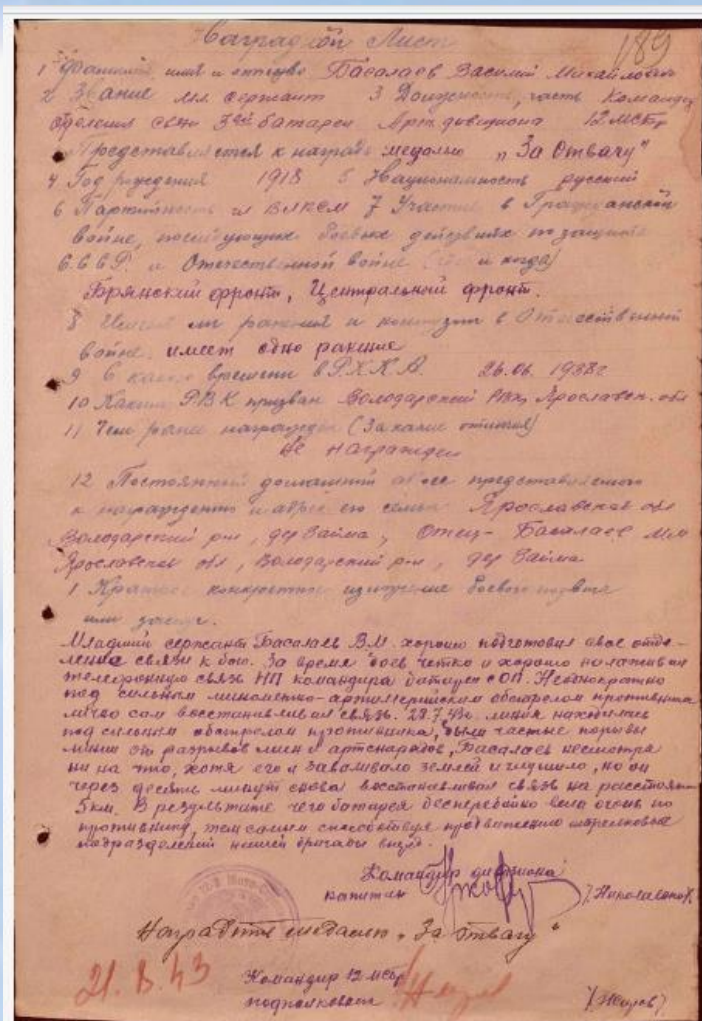 Наградной Лист
189
1 Фамилия имя и отчество Басалаев Василий Михайлович
2 Звание мл сержант 3 Должность, часть Командир
отделения связи 3ей батареи Артдивизиона 12 мсбр
Представляется к награде медалью „За Отвагу"
4 Год рождения 1918 5 Национальность русский
6 Партийность чл ВЛКСМ 7 Участие в Гражданской
войне, последующих боевых действиях по защите
С.С.С.Р. и Отечественной войне (где и когда)
Брянский фронт, Центральный фронт.
8 Имеет ли ранения и контузии в Отечественной
войне. имеет одно ранение
9 С какого времени в Р.К.К.А. 26.06.1938г
10 Каким РВК призван Володарский РВК, Ярославск. обл
11 Чем ранее награжден (За какие отличия)
Не награжден
12 Постоянный домашний адрес представляемого
к награждению и адрес его семьи Ярославская обл
Володарский р-н, дер Займа, Отец - Басалаев М.М
Ярославская обл, Володарский р-н, дер Займа
1 Краткое конкретное изложение боевого подвига
или заслуг.
Младший сержант Басалаев В.М. хорошо подготовил свое отде-
ление связи к бою. За время боев четко и хорошо налаживал
телефонную связь НП командира батареи с ОП. Неоднократно
под сильным минометно-артиллерийским обстрелом противника
лично сам восстанавливал связь. 28.7.43г. линия находилась
под сильным обстрелом противника, были частые порывы
линии от разрывов мин и артснарядов, Басалаев несмотря
ни на что, хотя его и заваливало землей и глушило, но он
через десять минут снова восстанавливал связь на расстоян.
5км. В результате чего батарея бесперебойно вела огонь по
противнику, тем самым способствуя продвижению стрелковых
подразделений нашей бригады вперед.
Командир дивизиона
капитан /Николаенко/.
Наградить медалью „За отвагу"
21.8.43
Командир 12 мсбр
подполковник